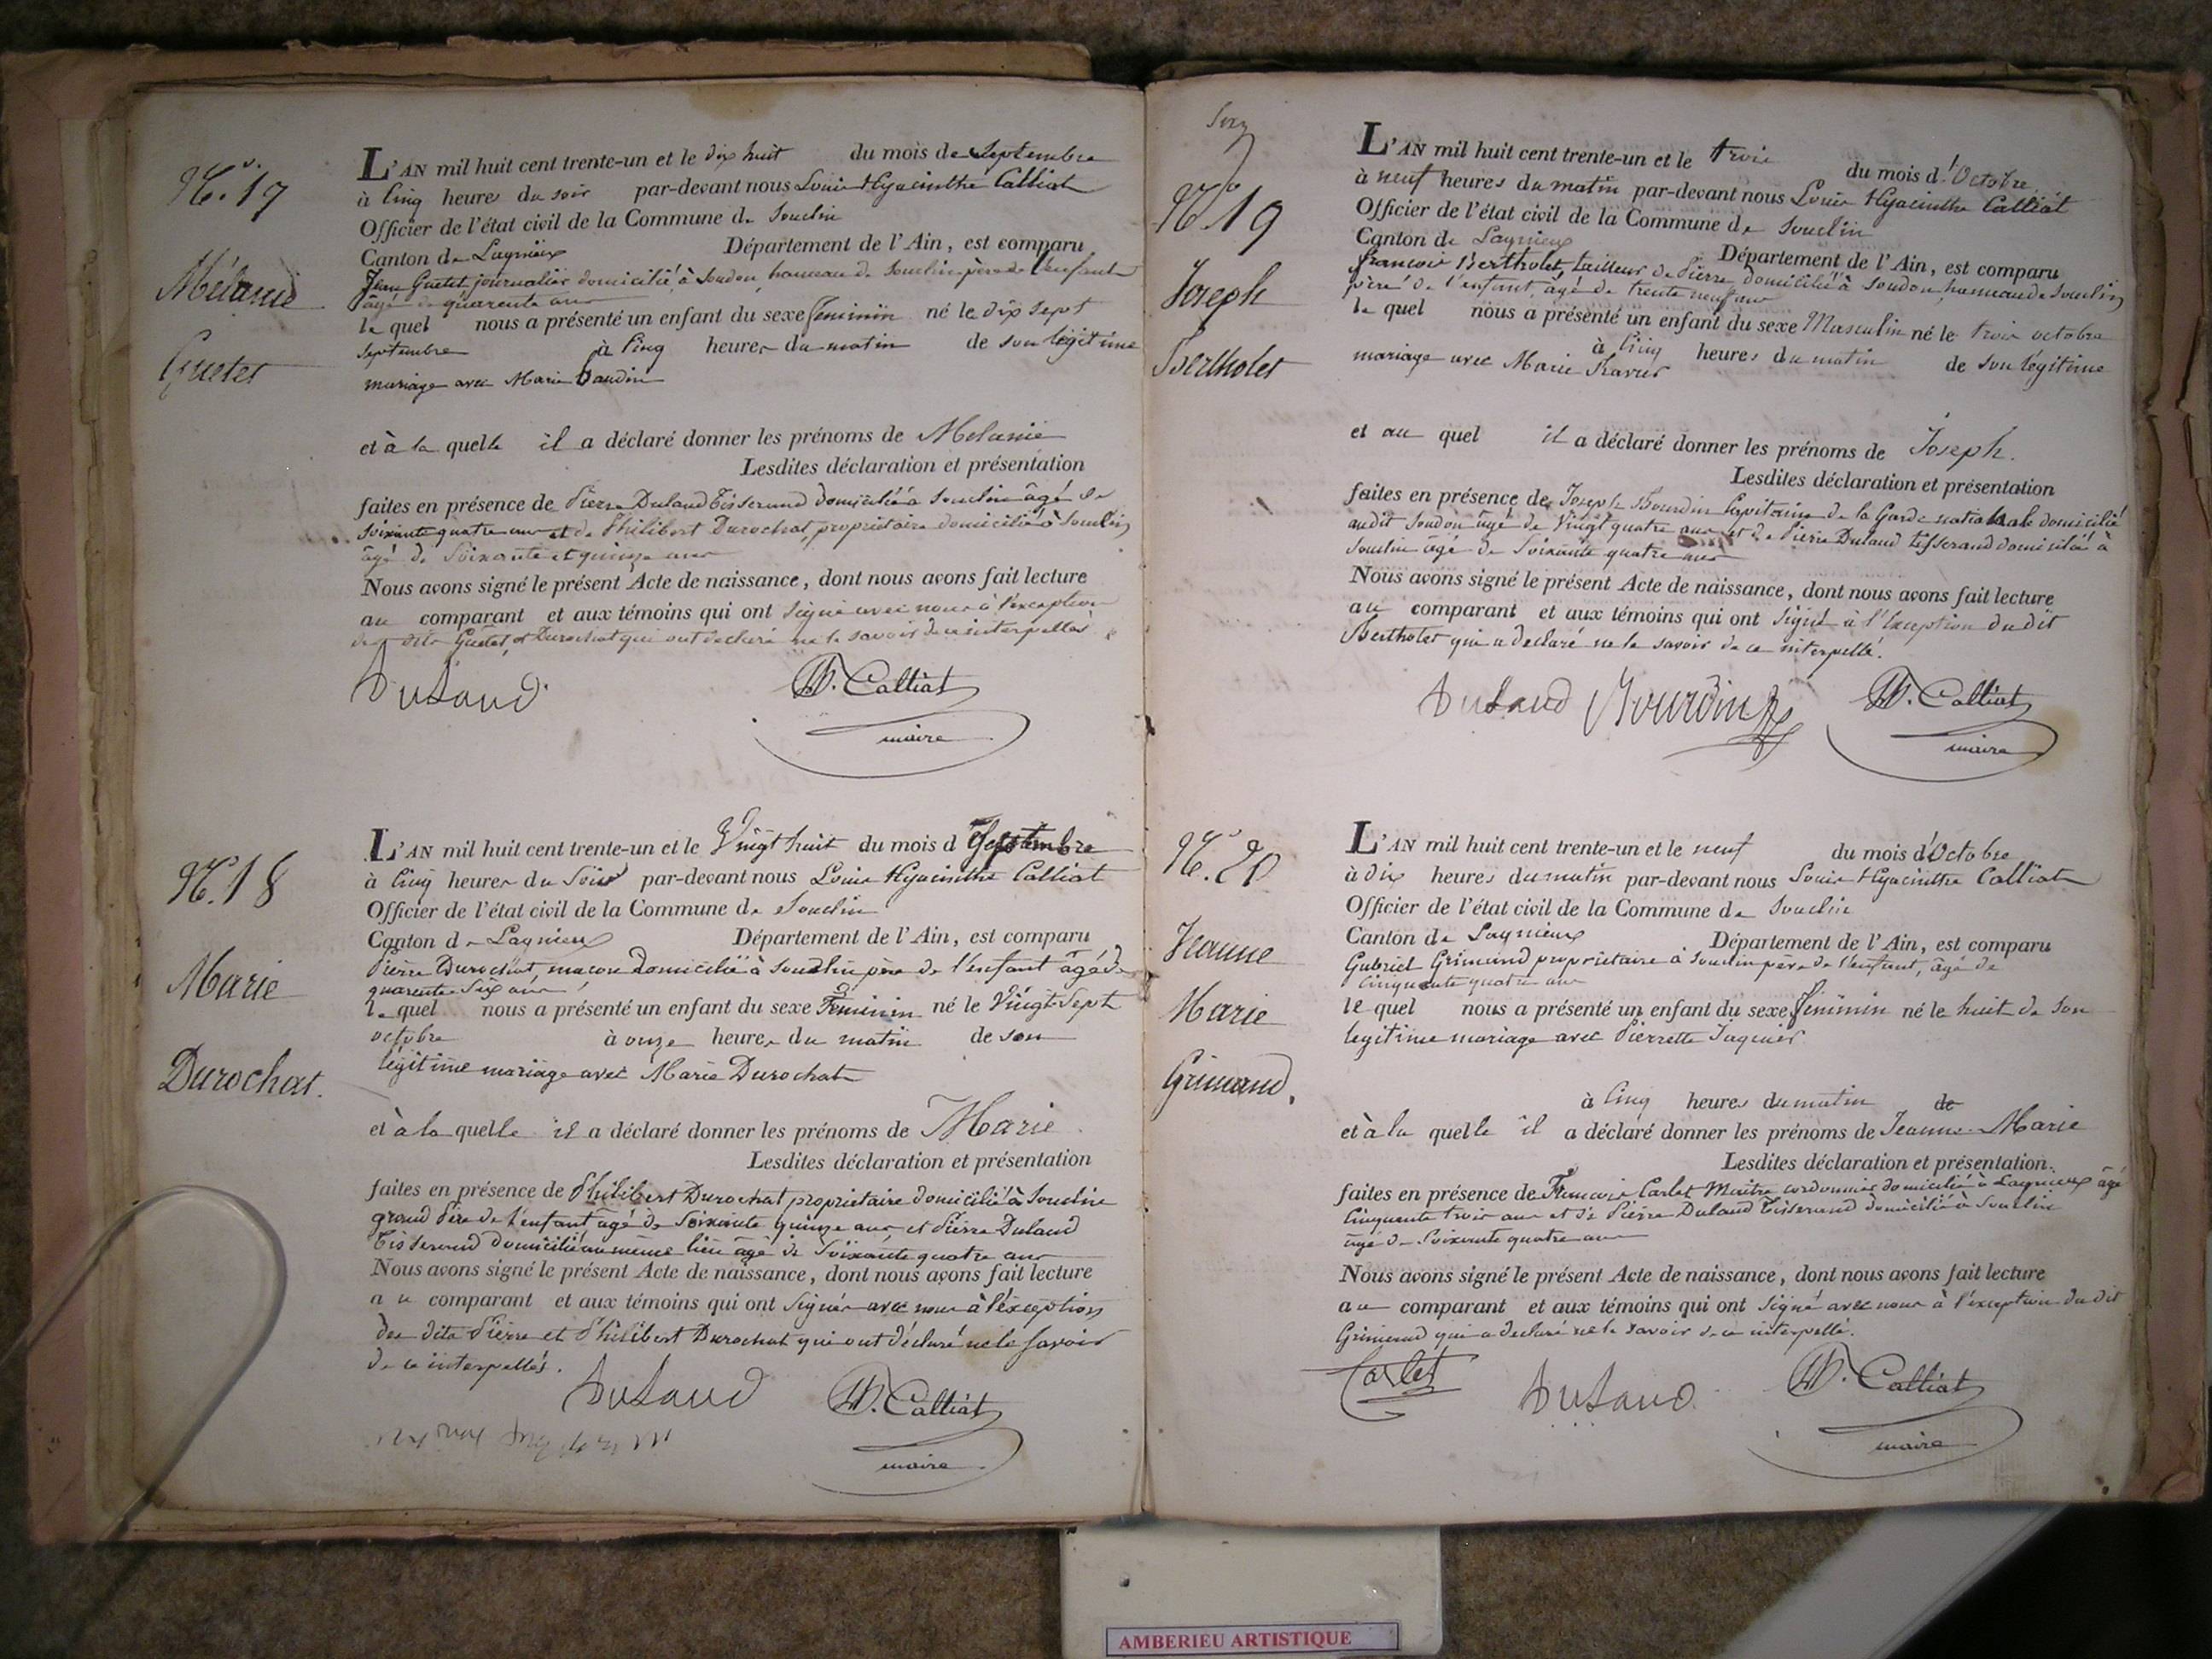 N.° 17
Mélanie
Guetet
L'AN mil huit cent trente-un et le dix huit du mois de Septembre
à Cinq heures du soir par-devant nous Louis Hyacinthe Calliat
Officier de l'état civil de la Commune de Souclin
Canton de Lagnieux Département de l'Ain, est comparu
Jean Guetet, journalier domicilié à Soudon, hameau de Souclin père de l'enfant
âgé de quarente ans
le quel nous a présenté un enfant du sexe feminin né le dix sept
septembre à Cinq heures du matin de son légitime
mariage avec Marie
et à la quelle il a déclaré donner les prénoms de Melanie
Lesdites déclaration et présentation
faites en présence de Pierre Dulaud Tisserand domicilié à Souclin âgé de
soixante quatre ans et de Philibert Durochat, propriétaire domicilié à Souclin
âgé de Soixante et quinze ans
Nous avons signé le présent Acte de naissance, dont nous avons fait lecture
au comparant et aux témoins qui ont signé avec nous à l'exception
des dits Guetet, et Durochat qui ont declaré ne le savoir de ce interpellés
Dulaud
H. Calliat
maire
N.° 18
Marie
Durochat.
L'AN mil huit cent trente-un et le Vingt huit du mois d Septembre
à Cinq heures du Soir par-devant nous Louis Hyacinthe Calliat
Officier de l'état civil de la Commune de Souclin
Canton de Lagnieux Département de l'Ain, est comparu
Pierre Durochat, macon domicilié à Souclin père de l'enfant âgé de
quarente Six ans
le quel nous a présenté un enfant du sexe Feminin né le Vingt Sept
octobre à onze heures du matin de son
légitime mariage avec Marie Durochat
et à la quelle il a déclaré donner les prénoms de Marie
Lesdites déclaration et présentation
faites en présence de Philibert Durochat propriétaire domicilié à Souclin
grand Père de l'enfant âgé de Soixante quinze ans et Pierre Dulaud
Tisserand domicilié au même lieu âgé de Soixante quatre ans
Nous avons signé le présent Acte de naissance, dont nous avons fait lecture
au comparant et aux témoins qui ont Signés avec nous à l'éxception
des dits Pierre et Philibert Durochat qui ont déclaré ne le savoir
de ce interpellés.
Dulaud
H. Calliat
maire
N.° 19
Joseph
Bertholet
L'AN mil huit cent trente-un et le trois du mois d'Octobre
à neuf heures du matin par-devant nous Louis Hyacinthe Calliat
Officier de l'état civil de la Commune de Souclin
Canton de Lagnieux Département de l'Ain, est comparu
francois Bertholet, tailleur de Pierre domicilié à Soudon, hameau de Souclin
père de l'enfant, âgé de trente neuf ans
le quel nous a présenté un enfant du sexe Masculin né le trois octobre
à Cinq heures du matin de son légitime
mariage avec Marie Ravier
et au quel il a déclaré donner les prénoms de Joseph.
Lesdites déclaration et présentation
faites en présence de Joseph Bourdin Capitaine de la Garde nationale domicilié
audit Soudon âgé de Vingt quatre ans et de Pierre Dulaud tisserand domicilié à
Souclin âgé de Soixante quatre ans
Nous avons signé le présent Acte de naissance, dont nous avons fait lecture
au comparant et aux témoins qui ont signé à l'Exception du dit
Bertholet qui a declaré ne le savoir de ce interpellé.
Dulaud
Bourdin
H. Calliat
maire
N.° 20
Jeanne
Marie
Grimand.
L'AN mil huit cent trente-un et le neuf du mois d'Octobre
à dix heures du matin par-devant nous Louis Hyacinthe Calliat
Officier de l'état civil de la Commune de Souclin
Canton de Lagnieux Département de l'Ain, est comparu
Gabriel Grimand propriétaire à Souclin père de l'enfant, âgé de
Cinquante quatre ans
le quel nous a présenté un enfant du sexe féminin né le huit de son
legitime mariage avec Pierrette Jaquier
à Cinq heures du matin de
et à la quelle il a déclaré donner les prénoms de Jeanne Marie
Lesdites déclaration et présentation.
faites en présence de Francois Carlet Maitre cordonnier domicilié à Lagnieux âgé
Cinquante trois ans et de Pierre Dulaud Tisserand domicilié à Souclin
âgé de Soixante quatre ans
Nous avons signé le présent Acte de naissance, dont nous avons fait lecture
au comparant et aux témoins qui ont signé avec nous à l'exception du dit
Grimand qui a declaré ne le savoir de ce interpellé.
Carlet
Dulaud
H. Calliat
maire
AMBERIEU ARTISTIQUE